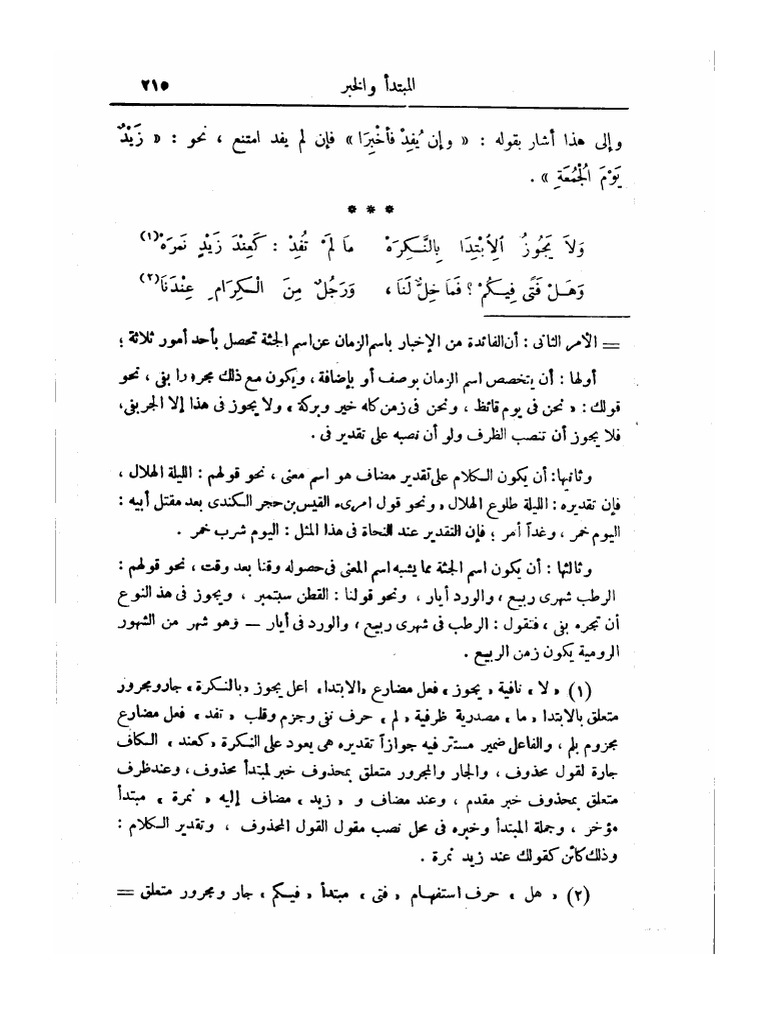 المبتدأ والخبر ٢١٥
وإلى هذا أشار بقوله : « وإن يُفِدْ فأخْبِرَا » فإن لم يفد امتنع ، نحو : « زَيْدٌ
يَوْمَ الْجُمُعَةِ » .
* * *
وَلاَ يَجُوزُ الِابْتِدَا بِالنَّكِرَهْ مَا لَمْ تُفِدْ : كَعِنْدَ زَيْدٍ نَمِرَهْ (١)
وَهَلْ فَتًى فِيكُمْ ؟ فَمَا خِلٌّ لَنَا ، وَرَجُلٌ مِنَ الْكِرَامِ عِنْدَنَا (٢)
= الأمر الثانى : أن الفائدة من الإخبار باسم الزمان عن اسم الجثة تحصل بأحد أمور ثلاثة ؛
أولها : أن يتخصص اسم الزمان بوصف أو بإضافة ، ويكون مع ذلك مجرورا بفى ، نحو
قولك : « نحن فى يوم قائظ ، ونحن فى زمن كله خير وبركة » ولا يجوز فى هذا إلا الجر بفى ،
فلا يجوز أن تنصب الظرف ولو أن نصبه على تقدير فى .
وثانيها : أن يكون الكلام على تقدير مضاف هو اسم معنى ، نحو قولهم : الليلة الهلال ،
فإن تقديره : الليلة طلوع الهلال ، ونحو قول امرىء القيس بن حجر الكندى بعد مقتل أبيه :
اليوم خمر ، وغداً أمر ؛ فإن التقدير عند النحاة فى هذا المثل : اليوم شرب خمر .
وثالثها : أن يكون اسم الجثة مما يشبه اسم المعنى فى حصوله وقتا بعد وقت ، نحو قولهم :
الرطب شهرى ربيع ، والورد أيار ، ونحو قولنا : القطن سبتمبر ، ويجوز فى هذ النوع
أن تجره بفى ، فتقول : الرطب فى شهرى ربيع ، والورد فى أيار — وهو شهر من الشهور
الرومية يكون زمن الربيع .
(١) « لا » نافية « يجوز » فعل مضارع « الابتدا » اعل يجوز « بالنكرة » جار ومجرور
متعلق بالابتدا « ما » مصدرية ظرفية « لم » حرف نفى وجزم وقلب « تفد » فعل مضارع
مجزوم بلم ، والفاعل ضمير مستتر فيه جوازاً تقديره هى يعود على النكرة « كعند » الكاف
جارة لقول محذوف ، والجار والمجرور متعلق بمحذوف خبر لمبتدأ محذوف ، وعند ظرف
متعلق بمحذوف خبر مقدم ، وعند مضاف و « زيد » مضاف إليه « نمرة » مبتدأ
مؤخر ، وجملة المبتدأ وخبره فى محل نصب مقول القول المحذوف ، وتقدير الكلام :
وذلك كائن كقولك عند زيد نمرة .
(٢) « هل » حرف استفهام « فتى » مبتدأ « فيكم » جار ومجرور متعلق =